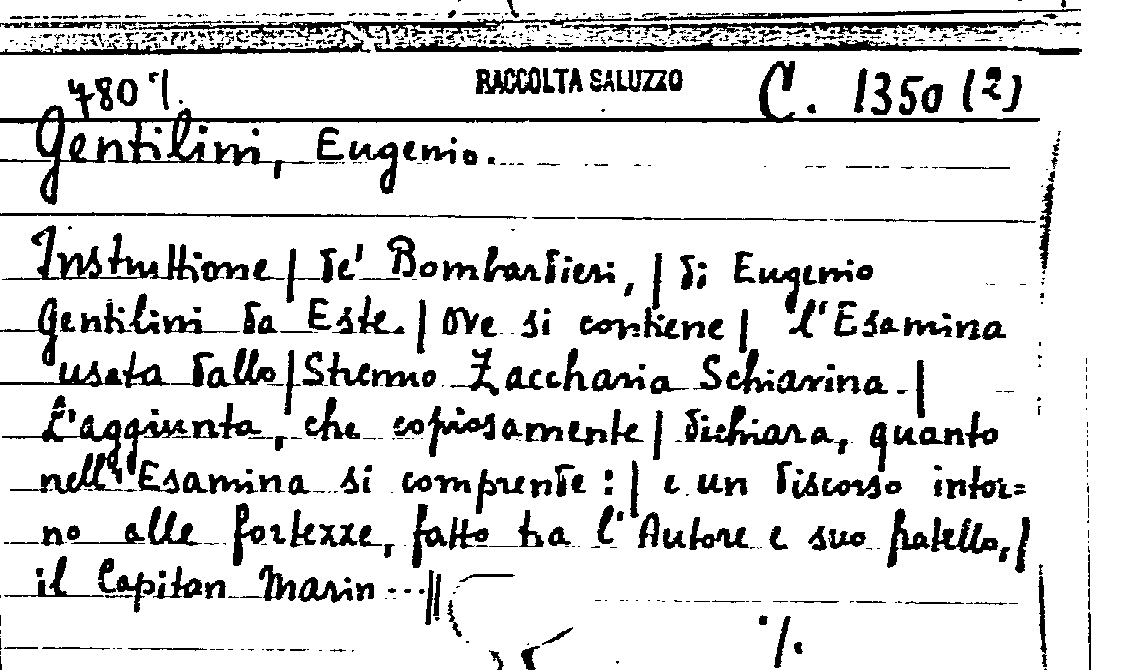 480 ./. RACCOLTA SALUZZO C. 1350 (2)
Gentilini, Eugenio.
Instruttione | de' Bombardieri, | di Eugenio
Gentilini da Este. | Ove si contiene | l'Esamina
usata dallo | Strenuo Zaccharia Schiavina. |
L'aggiunta, che copiosamente | dichiara, quanto
nell'Esamina si comprende : | e un discorso intor=
no alle fortezze, fatto tra l'Autore e suo fratello, |
il Capitan Marin ... ||
./.